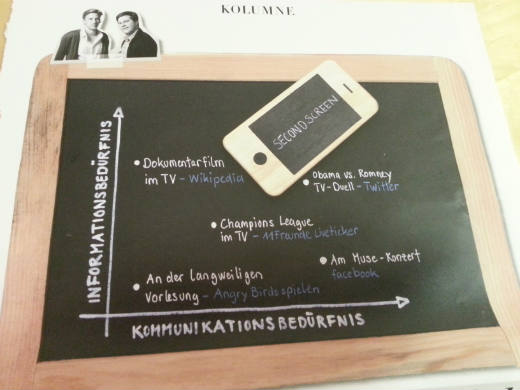 KOLUMNE
SECOND SCREEN
INFORMATIONSBEDÜRFNIS
Dokumentarfilm
im TV – Wikipedia
Obama vs. Romney
TV-Duell – Twitter
Champions League
im TV – 11Freunde Liveticker
Am Muse-Konzert
facebook
An der Langweiligen
Vorlesung – Angry Birds spielen
KOMMUNIKATIONSBEDÜRFNIS